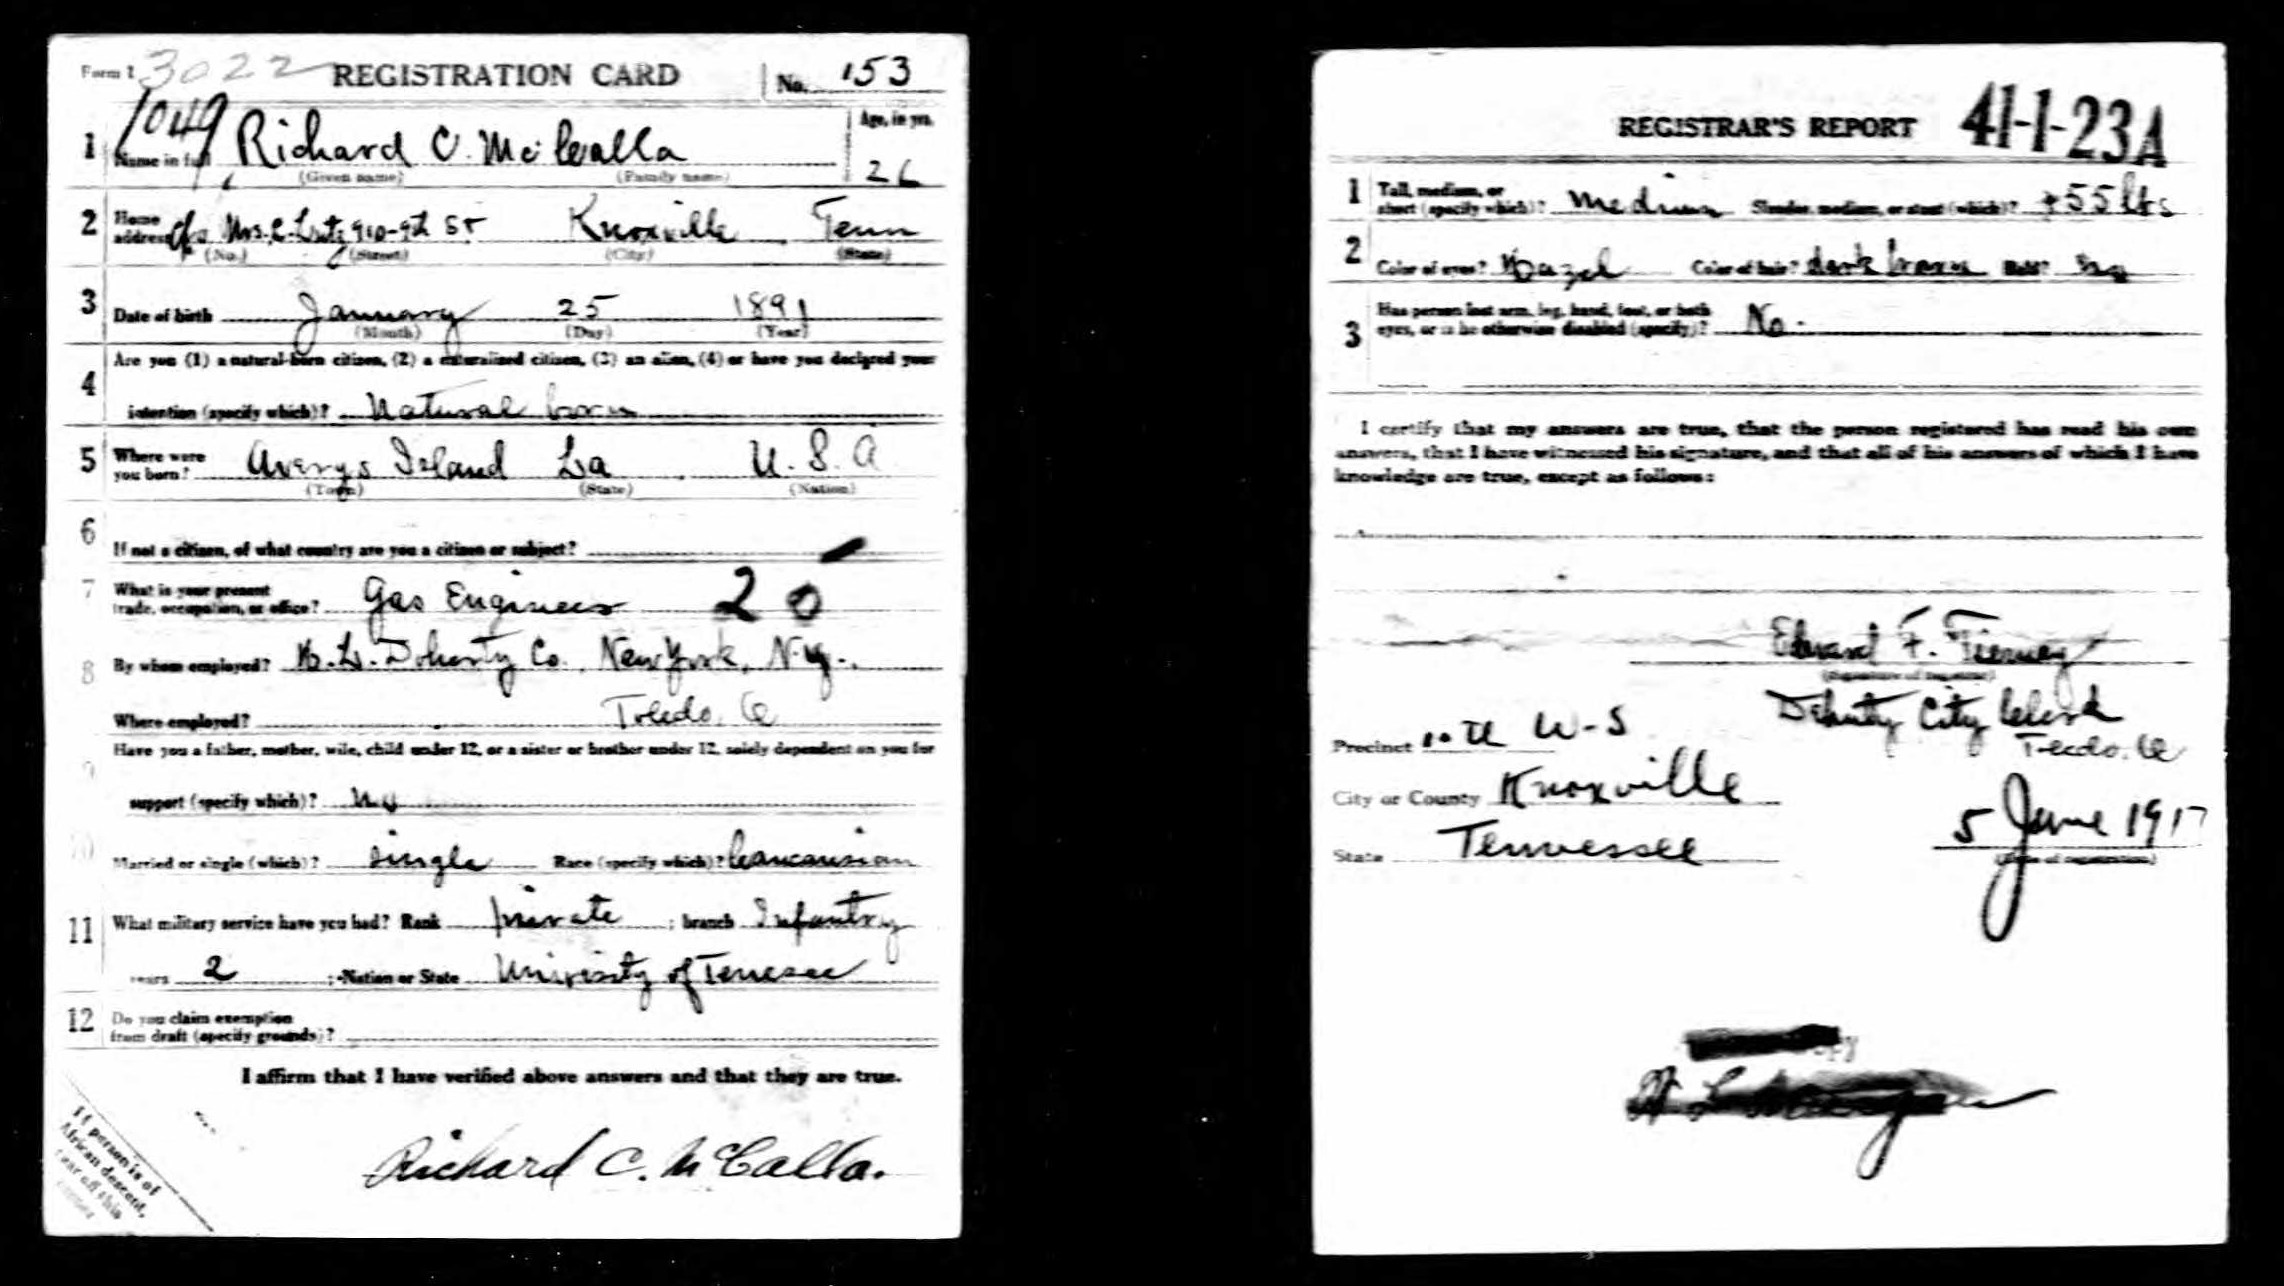 Form 1 3022 REGISTRATION CARD No. 153
1049
1 Name in full Richard C. McCalla Age, in yrs.
(Given name) (Family name) 26
2 Home address c/o Mrs. C. Lutz 910-9th St Knoxville Tenn
(No.) (Street) (City) (State)
3 Date of birth January 25 1891
(Month) (Day) (Year)
Are you (1) a natural-born citizen, (2) a naturalized citizen, (3) an alien, (4) or have you declared your
4 intention (specify which)? Natural born
5 Where were you born? Averys Island La U.S.A
(Town) (State) (Nation)
6 If not a citizen, of what country are you a citizen or subject?
7 What is your present trade, occupation, or office? Gas Engineer 20
8 By whom employed? H. L. Doherty Co. New York, N.Y.
Where employed? Toledo, O
9 Have you a father, mother, wife, child under 12, or a sister or brother under 12, solely dependent on you for
support (specify which)? No
10 Married or single (which)? single Race (specify which)? Caucausian
11 What military service have you had? Rank private ; branch Infantry
years 2 ; Nation or State University of Tenesee
12 Do you claim exemption
from draft (specify grounds)?
I affirm that I have verified above answers and that they are true.
Richard C. McCalla.
If person is of
African descent,
tear off this
corner
REGISTRAR'S REPORT 41-1-23A
1 Tall, medium, or short (specify which)? Medium Slender, medium, or stout (which)? 155 lbs
2 Color of eyes? Hazel Color of hair? dark brown Bald? no
3 Has person lost arm, leg, hand, foot, or both
eyes, or is he otherwise disabled (specify)? No.
I certify that my answers are true, that the person registered has read his own
answers, that I have witnessed his signature, and that all of his answers of which I have
knowledge are true, except as follows:
Edward F. Tierney
(Signature of registrar)
Deputy City Clerk
Toledo, O
Precinct 10th W-S
City or County Knoxville
State Tennessee
5 June 1917
(Date of registration)